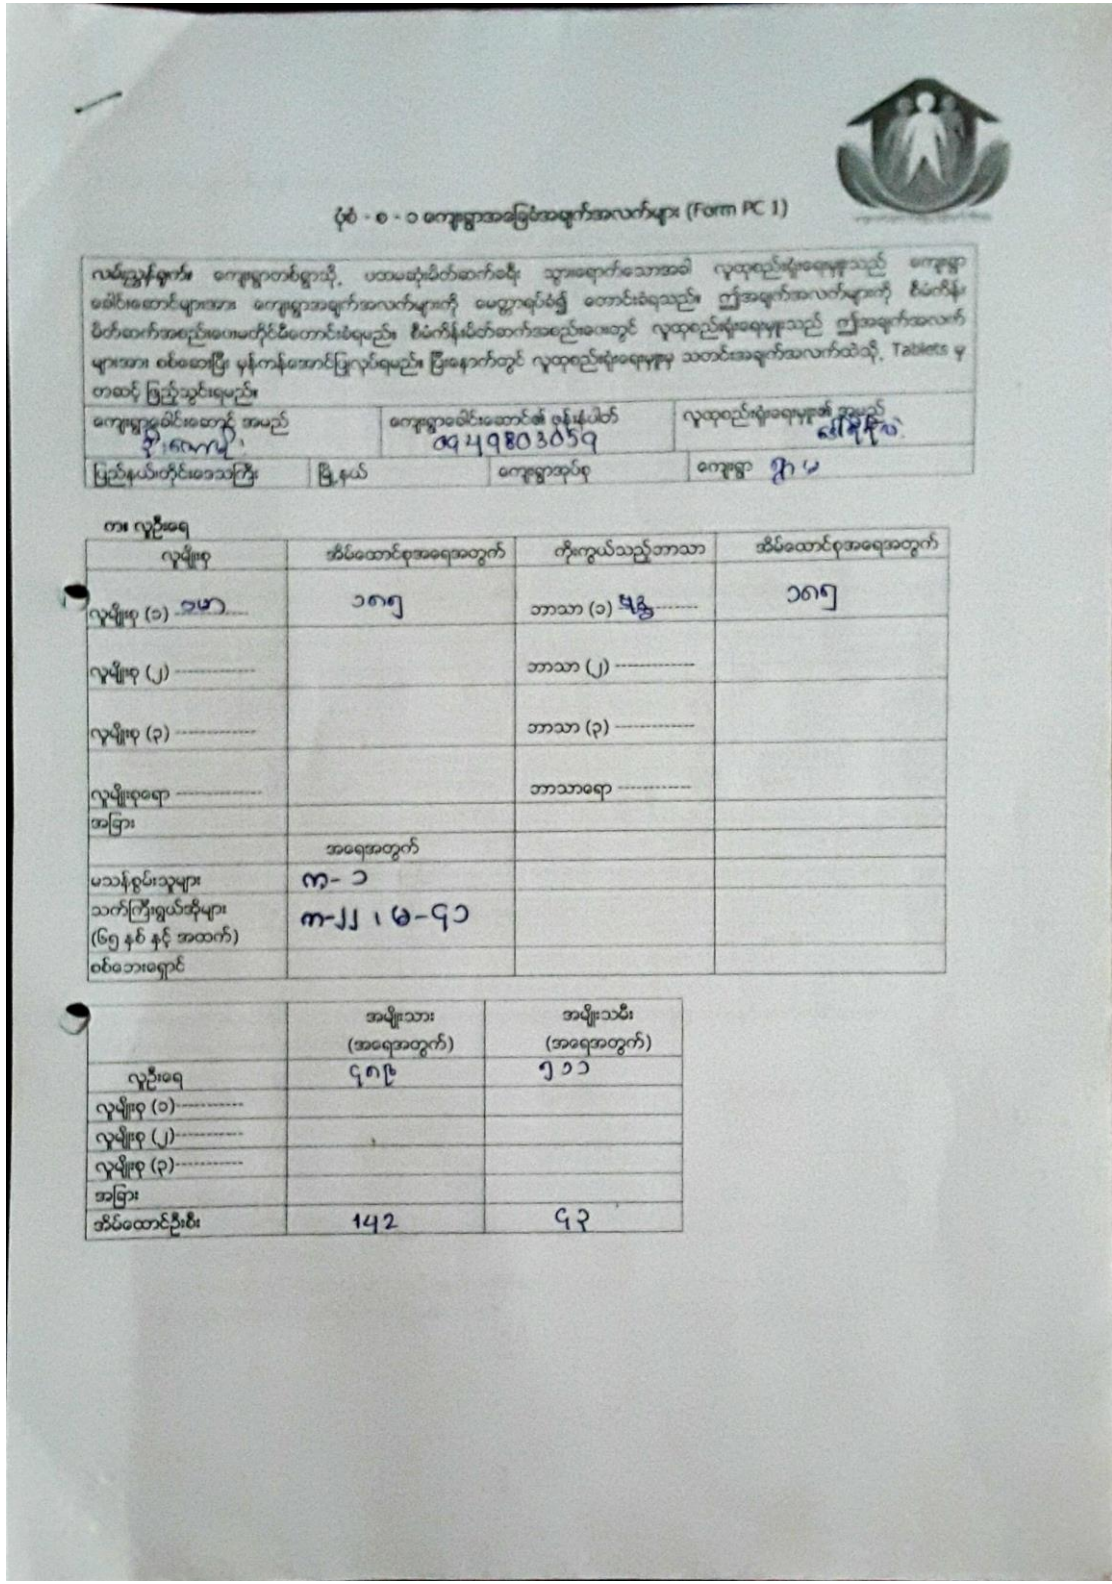 ပုံစံ - စ - ၁ ကျေးရွာအခြေခံအချက်အလက်များ (Form PC 1)
လမ်းညွှန်ချက်။ ကျေးရွာတစ်ရွာသို့ ပထမဆုံးမိတ်ဆက်ခရီး သွားရောက်သောအခါ လူထုစည်းရုံးရေးမှူးသည် ကျေးရွာ
ခေါင်းဆောင်များအား ကျေးရွာအချက်အလက်များကို မေတ္တာရပ်ခံ၍ တောင်းခံရသည်။ ဤအချက်အလက်များကို စီမံကိန်း
မိတ်ဆက်အစည်းဝေးမတိုင်မီတောင်းခံရမည်။ စီမံကိန်းမိတ်ဆက်အစည်းဝေးတွင် လူထုစည်းရုံးရေးမှူးသည် ဤအချက်အလက်
များအား စစ်ဆေးပြီး မှန်ကန်အောင်ပြုလုပ်ရမည်။ ပြီးနောက်တွင် လူထုစည်းရုံးရေးမှူးမှ သတင်းအချက်အလက်ထဲသို့ Tablets မှ
တဆင့် ဖြည့်သွင်းရမည်။
ကျေးရွာခေါင်းဆောင့် အမည် ကျေးရွာခေါင်းဆောင်၏ ဖုန်းနံပါတ် လူထုစည်းရုံးရေးမှူး၏ အမည်
0949803059
ပြည်နယ်/တိုင်းဒေသကြီး မြို့နယ် ကျေးရွာအုပ်စု ကျေးရွာ ရွာမ
က။ လူဦးရေ
လူမျိုးစု အိမ်ထောင်စုအရေအတွက် ကိုးကွယ်သည့်ဘာသာ အိမ်ထောင်စုအရေအတွက်
လူမျိုးစု (၁) ဗမာ ၁၈၅ ဘာသာ (၁) ဗုဒ္ဓ ၁၈၅
လူမျိုးစု (၂) -------------- ဘာသာ (၂) --------------
လူမျိုးစု (၃) -------------- ဘာသာ (၃) --------------
လူမျိုးစုရော -------------- ဘာသာရော -------------
အခြား
အရေအတွက်
မသန်စွမ်းသူများ က- ၁
သက်ကြီးရွယ်အိုများ က-၂၂ ၊ မ-၄၁
(၆၅ နှစ် နှင့် အထက်)
စစ်ဘေးရှောင်
အမျိုးသား အမျိုးသမီး
(အရေအတွက်) (အရေအတွက်)
လူဦးရေ ၄၈၉ ၅၁၁
လူမျိုးစု (၁)------------
လူမျိုးစု (၂)------------
လူမျိုးစု (၃)------------
အခြား
အိမ်ထောင်ဦးစီး 142 ၄၃